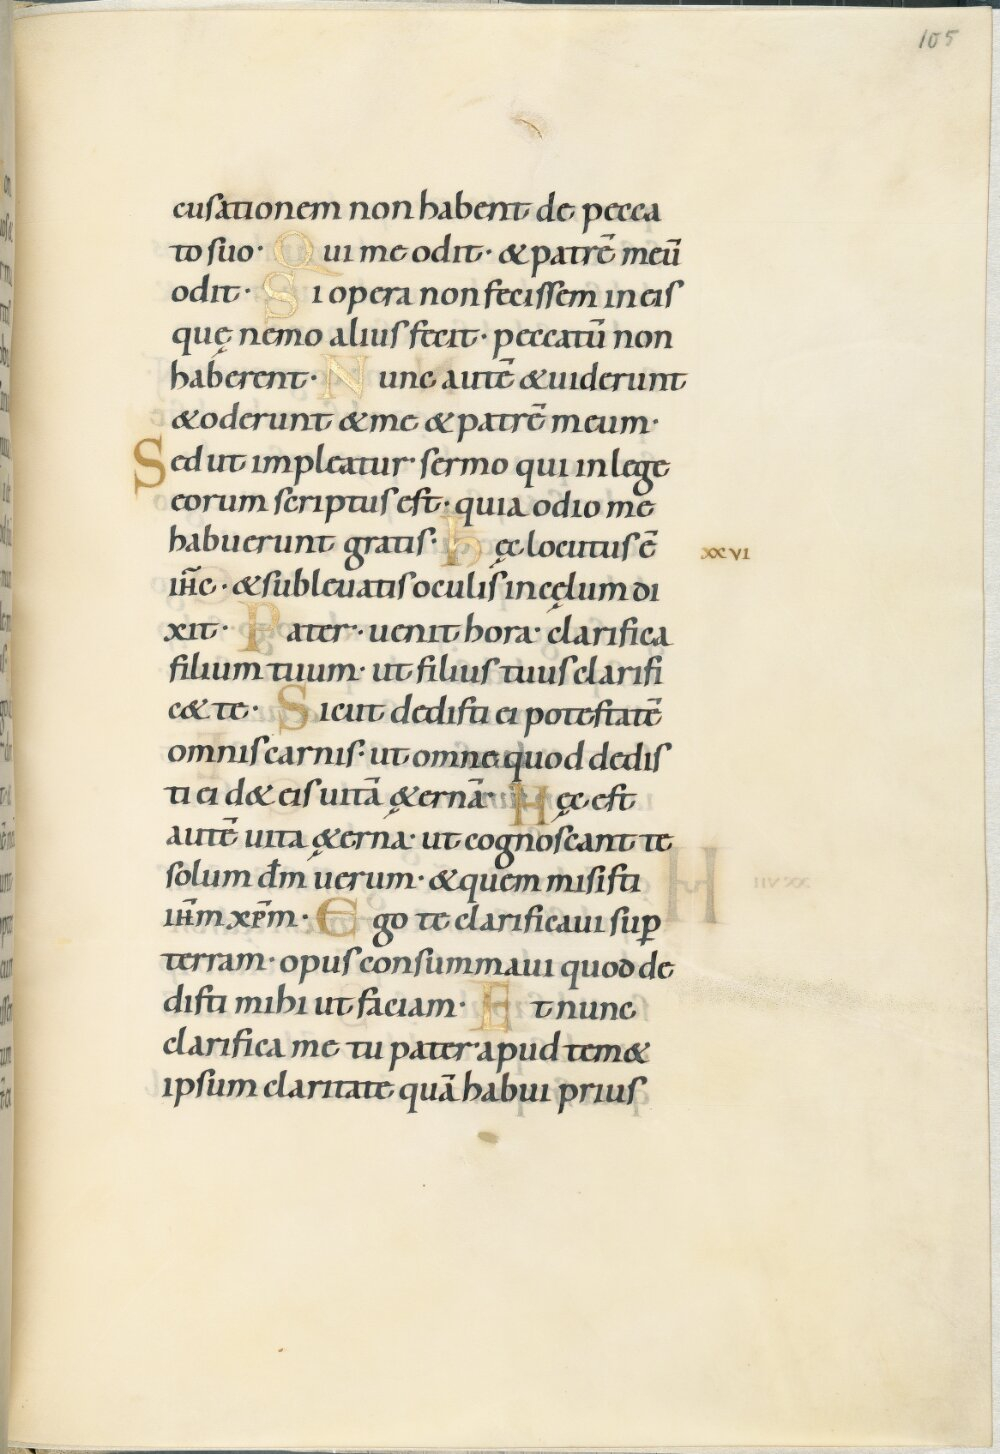 105
cusationem non habent de pecca
to suo· Qui me odit· & patrē meū
odit· Si opera non fecissem in eis
quę nemo alius fecit· peccatū non
haberent· Nunc autē & uiderunt
& oderunt & me & patrē meum·
Sed ut impleatur sermo qui in lege
eorum scriptus est· quia odio me
habuerunt gratis· hęc locutus ē XXVI
ih̄c· & subleuatis oculis in cęlum di
xit· Pater· uenit hora· clarifica
filium tuum· ut filius tuus clarifi
c& te· Sicut dedisti ei potestatē
omnis carnis· ut omne quod dedis
ti ei d& eis uitā &ernā· Hęc est
autē uita &erna· ut cognoscant te
solum dm̄ uerum· & quem misisti
ih̄m xp̄m· Ego te clarificaui sup̱
terram· opus consummaui quod de
disti mihi ut faciam· Et nunc
clarifica me tu pater apud tem&
ipsum claritate quā habui prius